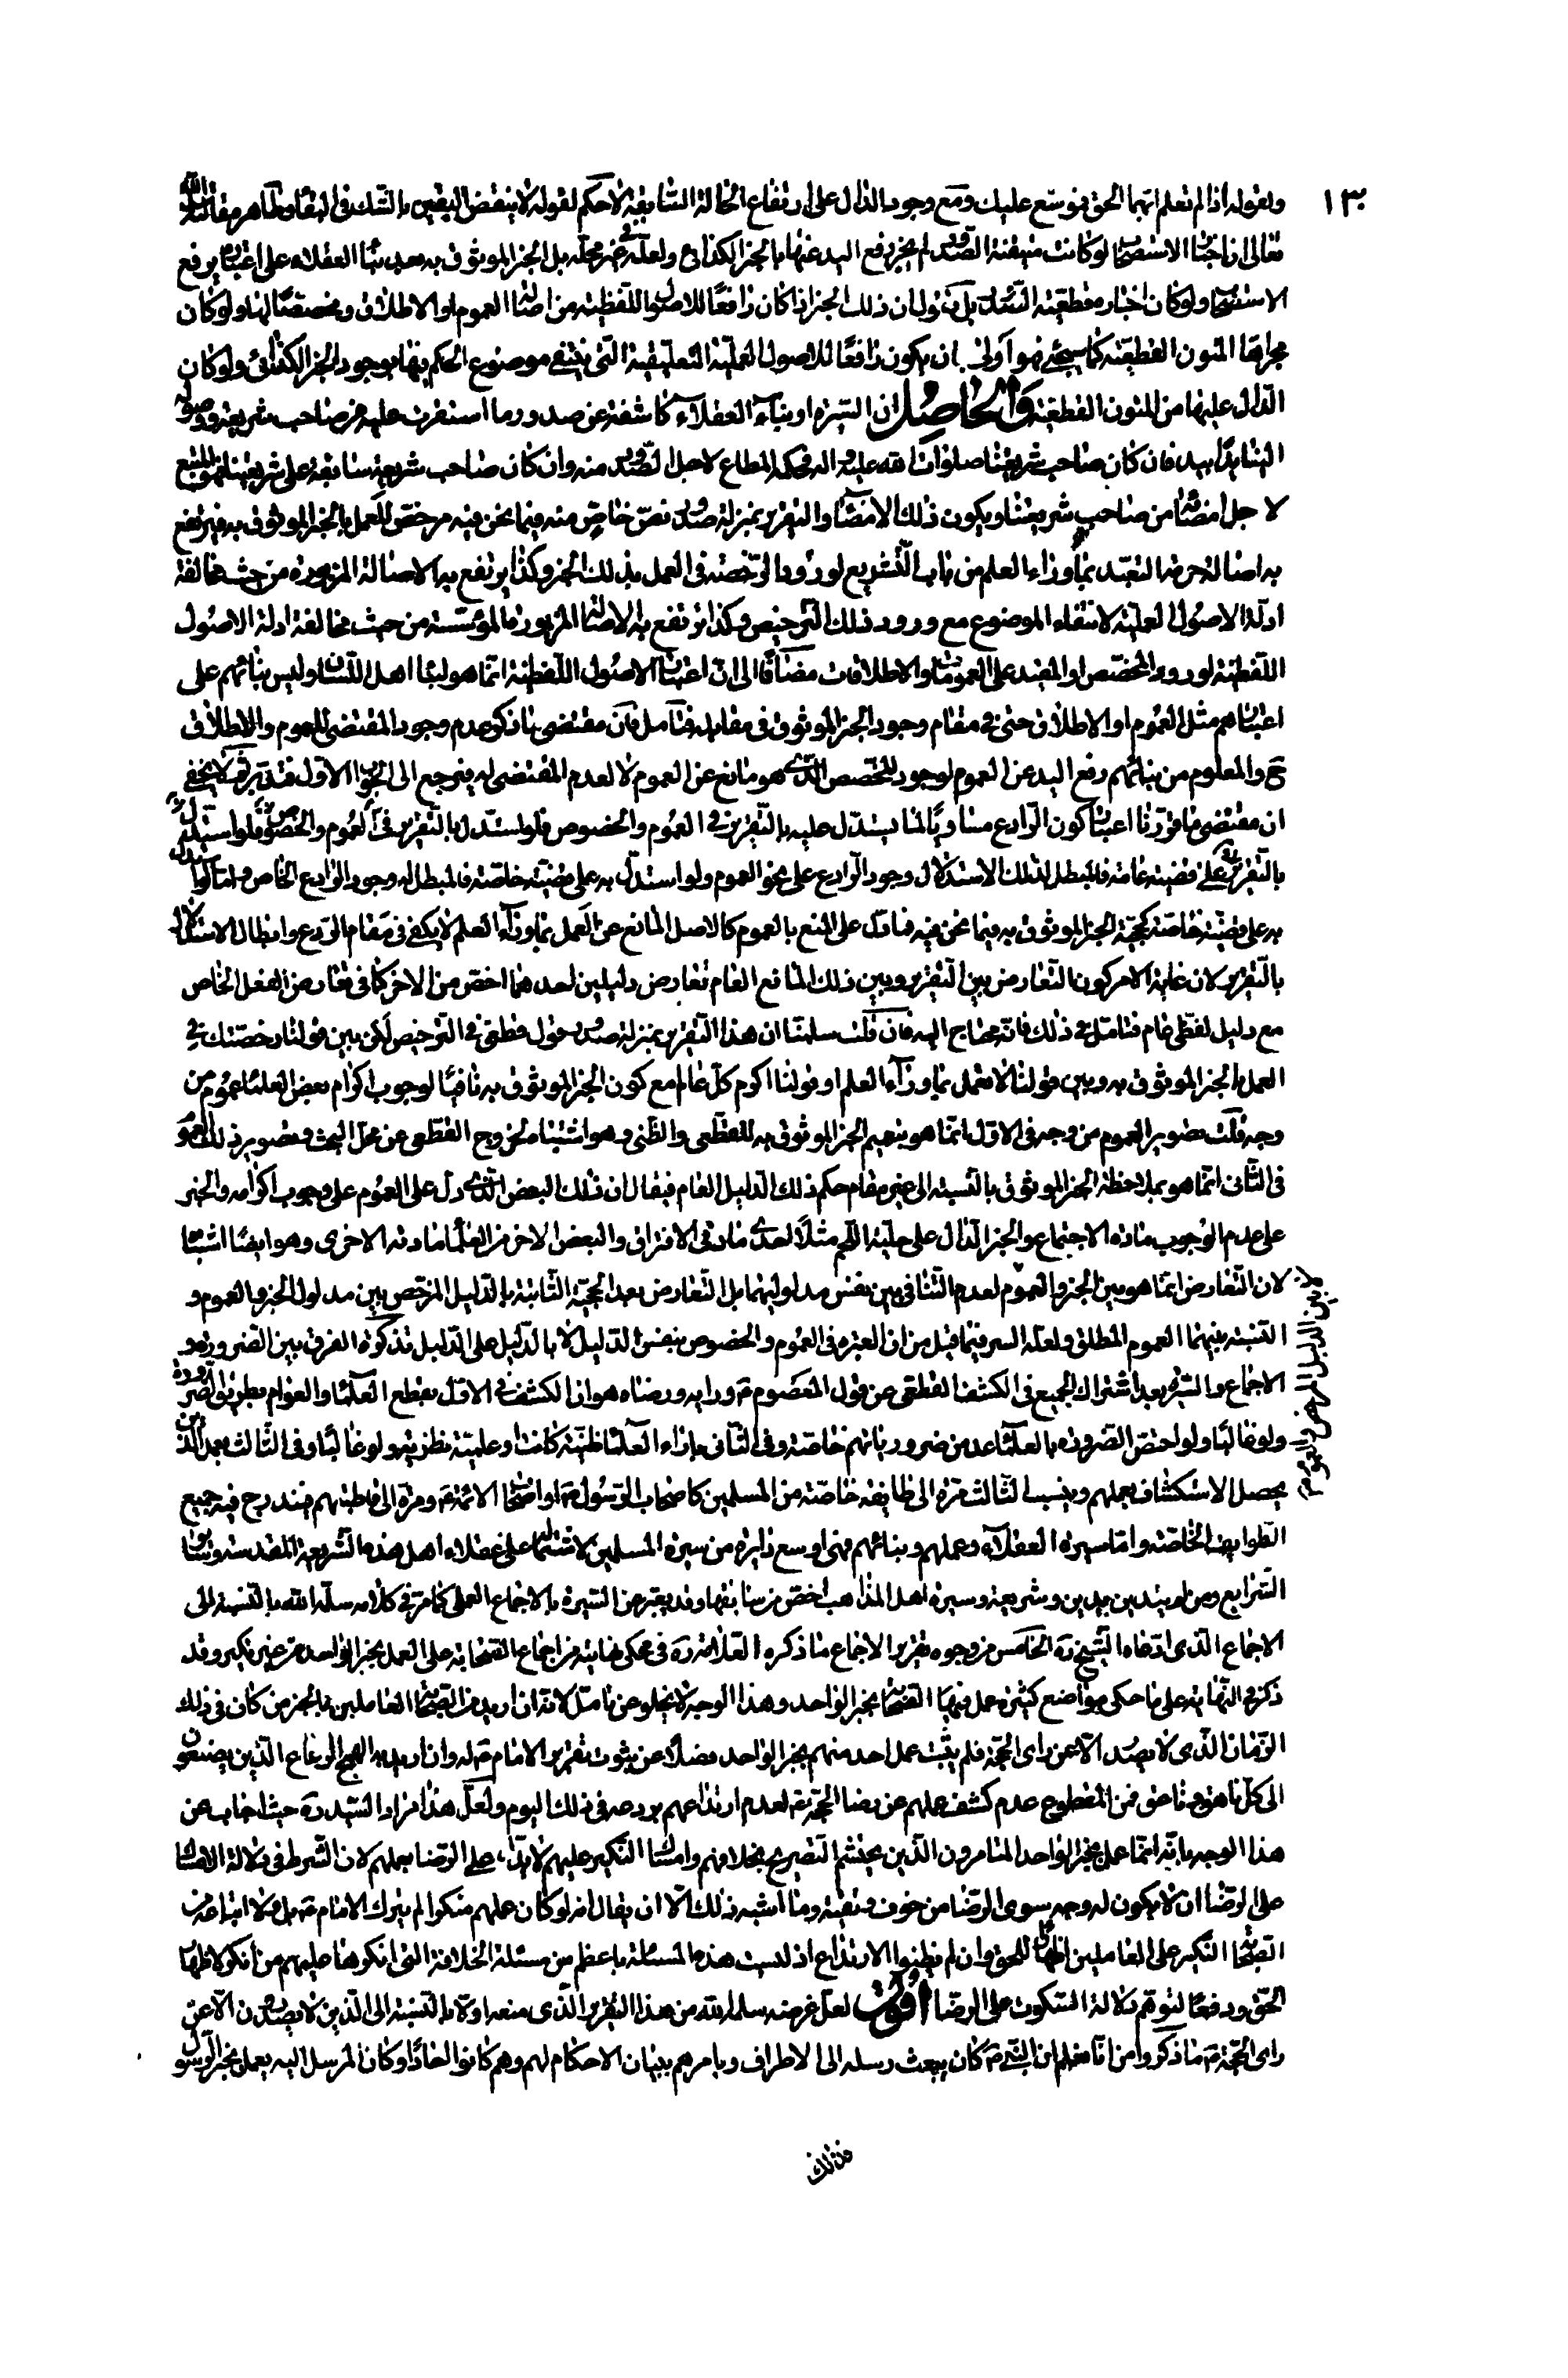 ١٣٠
ولقوله اذا لم تعلم ايهما الحق فموسّع عليك ومع وجود الدال على ارتفاع الحالة السابقة لا حكم لقوله لا ينقض اليقين بالشك في البقاء وظاهر مقالته سلمه الله
تعالى ان اخبار الاستصحاب لو كانت متيقنة الصدور لم يجز رفع اليد عنها بالخبر الكذائي ولعلّه في غير محلّه بل الخبر الموثوق به بعد بناء العقلاء على اعتباره يرفع
الاستصحاب ولو كان اخباره قطعيّة السّند بل نقول ان ذلك الخبر اذا كان رافعًا للاصول اللّفظيّة من اصالة العموم او الاطلاق ومخصّصًا لها ولو كان
مجراها المتون القطعيّة كما سيجئ فهو اولى بان يكون رافعًا للاصول العمليّة التعليقيّة التي ينتفي موضوع الحكم فيها بوجود الخبر الكذائي ولو كان
الدّال عليها من المتون القطعيّة والحاصل ان السّيرة او بناء العقلاء كاشفة عن صدور ما استقرّت عليه من صاحب شريعة ووصوله
الينا يدًا بيد فان كان صاحب شريعتنا صلوات الله عليه واله فحكمه المطاع لاجل الصّدور منه وان كان صاحب شريعة سابقة على شريعتنا فهو المتبع
لاجل امضائه من صاحب شريعتنا ويكون ذلك الامضاء والتقرير بمنزلة صدور نصّ خاصّ منه فيما نحن فيه مرخّص للعمل بالخبر الموثوق به فيرتفع
به اصالة حرمة التعبّد بما وراء العلم من باب التّشريع لورود الرّخصة في العمل بذلك الخبر وكذا يرتفع به الاصالة المزبورة من حيث مخالفة
ادلّة الاصول العمليّة لانتفاء الموضوع مع ورود ذلك التّرخيص وكذا يرتفع به الاصالة المزبورة المؤسّسة من حيث مخالفة ادلة الاصول
اللّفظيّة لورود المخصّص او المقيّد على العمومات والاطلاقات مضافًا الى انّ اعتبار الاصول اللّفظيّة انّما هو لبناء اهل اللّسان وليس بنائهم على
اعتبارهم مثل العموم او الاطلاق حتى في مقام وجود الخبر الموثوق في مقابله فتأمل فان مقتضى ما ذكر عدم وجود المقتضى للعموم والاطلاق
ح والمعلوم من بنائهم رفع اليد عن العموم لوجود المخصص الّذي هو مانع عن العموم لا لعدم المقتضى له فيرجع الى الجواب الاول فتدبّر لا يخفى
ان مقتضى ما قرّرنا اعتبار كون الرّادع مساويًا لما يستدل عليه بالتّقرير في العموم والخصوص فلو استدل
بالتّقرير على قضيّة عامّة فالمبطل لذلك الاستدلال وجود الرّادع على نحو العموم ولو استدلّ به على قضيّة خاصّة فالمبطل له وجود الرّادع الخاص
به على قضيّة خاصّة كحجيّة الخبر الموثوق به فيما نحن فيه فما دلّ على المنع بالعموم كالاصل المانع عن العمل بما وراء العلم لا يكفي في مقام الرّدع وابطال الاستدلال
بالتّقرير لان غاية الامر كون التعارض بين التّقرير وبين ذلك المانع العام تعارض دليلين احدهما اخصّ من الاخر كما في تعارض الفعل الخاص
مع دليل لفظي عام فتامّل في ذلك فانّه محتاج اليه فان قلت سلّمنا ان هذا التّقرير بمنزلة صدور قول قطعي في التّرخيص لكن بين قولنا رخصتك في
العمل بالخبر الموثوق به وبين قولنا لا تعمل بما وراء العلم او قولنا اكرم كلّ عالم مع كون الخبر الموثوق به نافيًا لوجوب اكرام بعض العلماء عموم من
وجه قلت تصوير العموم من وجه في الاوّل انّما هو بتعميم الخبر الموثوق به للقطعي والظّني وهو اشتباه لخروج القطعي عن محلّ البحث وتصوير ذلك العموم
في الثّاني انّما هو بملاحظة الخبر الموثوق بالنّسبة الى غير مقام حكم ذلك الدّليل العام فيقال ان ذلك البعض الّذي دلّ على العموم على وجوب اكرامه والخبر
على عدم الوجوب مادة الاجتماع والخبر الدّال على حليّة اللّحم مثلًا احدى مادّتي الافتراق والبعض الاخر من العلماء مادته الاخرى وهو ايضا اشتباه
لان التّعارض انّما هو بين الخبر والعموم لعدم التّنافي بين نفس مدلوليهما بل التّعارض بعد الحجيّة الثّابتة بالدّليل المرخّص بين مدلول الخبر والعموم و
النّسبة بينهما العموم المطلق ولعلّه السر فيما قيل من ان العبرة في العموم والخصوص بنفس الدّليل لا بالدّليل على الدّليل تذكرة الفرق بين الضّرورة و
الاجماع والسّيرة بعد اشتراك الجميع في الكشف القطعي عن قول المعصوم ع ورايه ورضاه هو ان الكشف في الاوّل بقطع العلماء والعوام بطريق الضّرورة
ولو غالبًا ولو اختصّ الضّرورة بالعلماء عد من ضرورياتهم خاصّة وفي الثّاني باراء العلماء ظنّية كانت او علميّة نظريّة ولو غالبًا وفي الثّالث بعد التّدين
يحصل الاستكشاف بعملهم وينسب الثّالث مرّة الى طايفة خاصّة من المسلمين كاصحاب الرّسول ص او اصحاب الائمّة ع ومرّة الى قاطبتهم فيندرج فيه جميع
الطّوايف الخاصّة وامّا سيرة العقلاء وعملهم وبنائهم فهي اوسع دايرة من سيرة المسلمين لاشتمالها على عقلاء اهل هذه الشّريعة المقدّسة وساير
الشّرايع ومن لم يتديّن بدين وشريعة وسيرة اهل المذاهب اخصّ من سابقها وقد يعبّر عن السّيرة بالاجماع العملي كما مرّ في كلامه سلّمه الله بالنّسبة الى
الاجماع الّذي ادّعاه الشّيخ ره الخامس من وجوه تقرير الاجماع ما ذكره العلامة ره في محكي نهايته من اجماع الصّحابة على العمل بخبر الواحد من غير نكير وقد
ذكر في النّهاية على ما حكي مواضع كثيرة عمل فيها الصّحابة بخبر الواحد وهذا الوجه لا يخلو عن تامّل لانه ان اريد من الصّحابة العاملين بالخبر من كان في ذلك
الزّمان الّذي لا يصدر الّا عن راى الحجّة فلم يثبت عمل احد منهم بخبر الواحد فضلًا عن ثبوت تقرير الامام ع له وان اريد به الهمج الرعاع الّذين يصغون
الى كلّ ناعق فمن المقطوع عدم كشف عملهم عن رضا الحجّة ع لعدم ارتداعهم بردعه في ذلك اليوم ولعلّ هذا مراد السّيّد ره حيث اجاب عن
هذا الوجه بانّه انّما عمل بخبر الواحد المتامرون الّذين يحتشم التصريح بخلافهم وامساك النّكير عليهم لا يدلّ على الرّضا بعملهم لان الشّرط في دلالة الامساك
على الرضا ان لا يكون له وجه سوى الرضا من خوف وتقيّة وما اشبه ذلك الّا ان يقال انه لو كان عملهم منكرا لم يترك الامام ع بل ولا اتباعه من
الصّحابة النّكير على العاملين اظهارا للحق وان لم يظنوا الارتداع اذ ليست هذه المسئلة باعظم من مسئلة الخلافة التي انكرها عليهم من انكر لاظهار
الحق ودفعًا لتوهّم دلالة السّكوت على الرضا اقول لعلّ غرضه سلّمه الله من هذا التّقرير الّذي منعه اولا بالنّسبة الى الّذين لا يصدرون الّا عن
راى الحجّة ع ما ذكروا من انّا نعلم ان النّبي ص كان يبعث رسله الى الاطراف ويامرهم ببيان الاحكام لهم وهم كانوا احادًا وكان المرسل اليه يعمل بخبر الرسول
لا بين الدليل المرخص والعموم